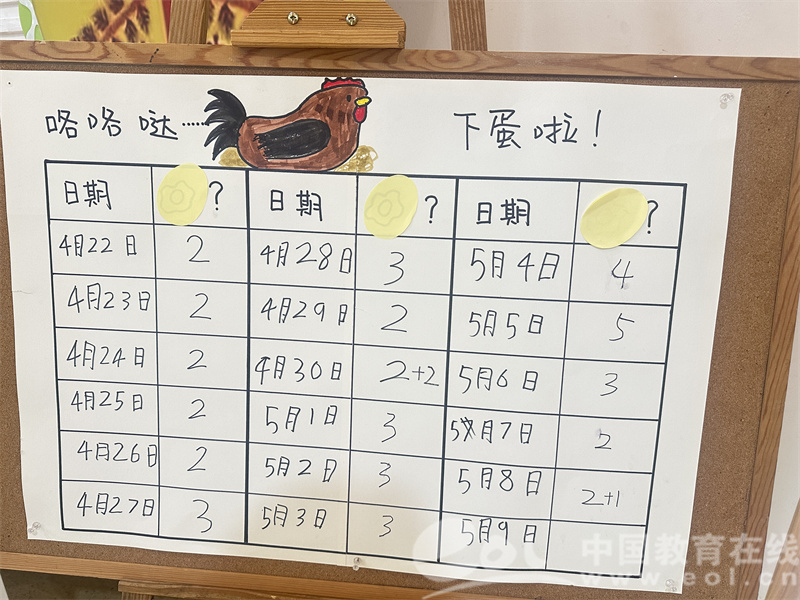 咯咯哒……下蛋啦！
日期 ? 日期 ? 日期 ?
4月22日 2 4月28日 3 5月4日 4
4月23日 2 4月29日 2 5月5日 5
4月24日 2 4月30日 2+2 5月6日 3
4月25日 2 5月1日 3 5月7日 2
4月26日 2 5月2日 3 5月8日 2+1
4月27日 3 5月3日 3 5月9日
eol 中国教育在线
www.eol.cn